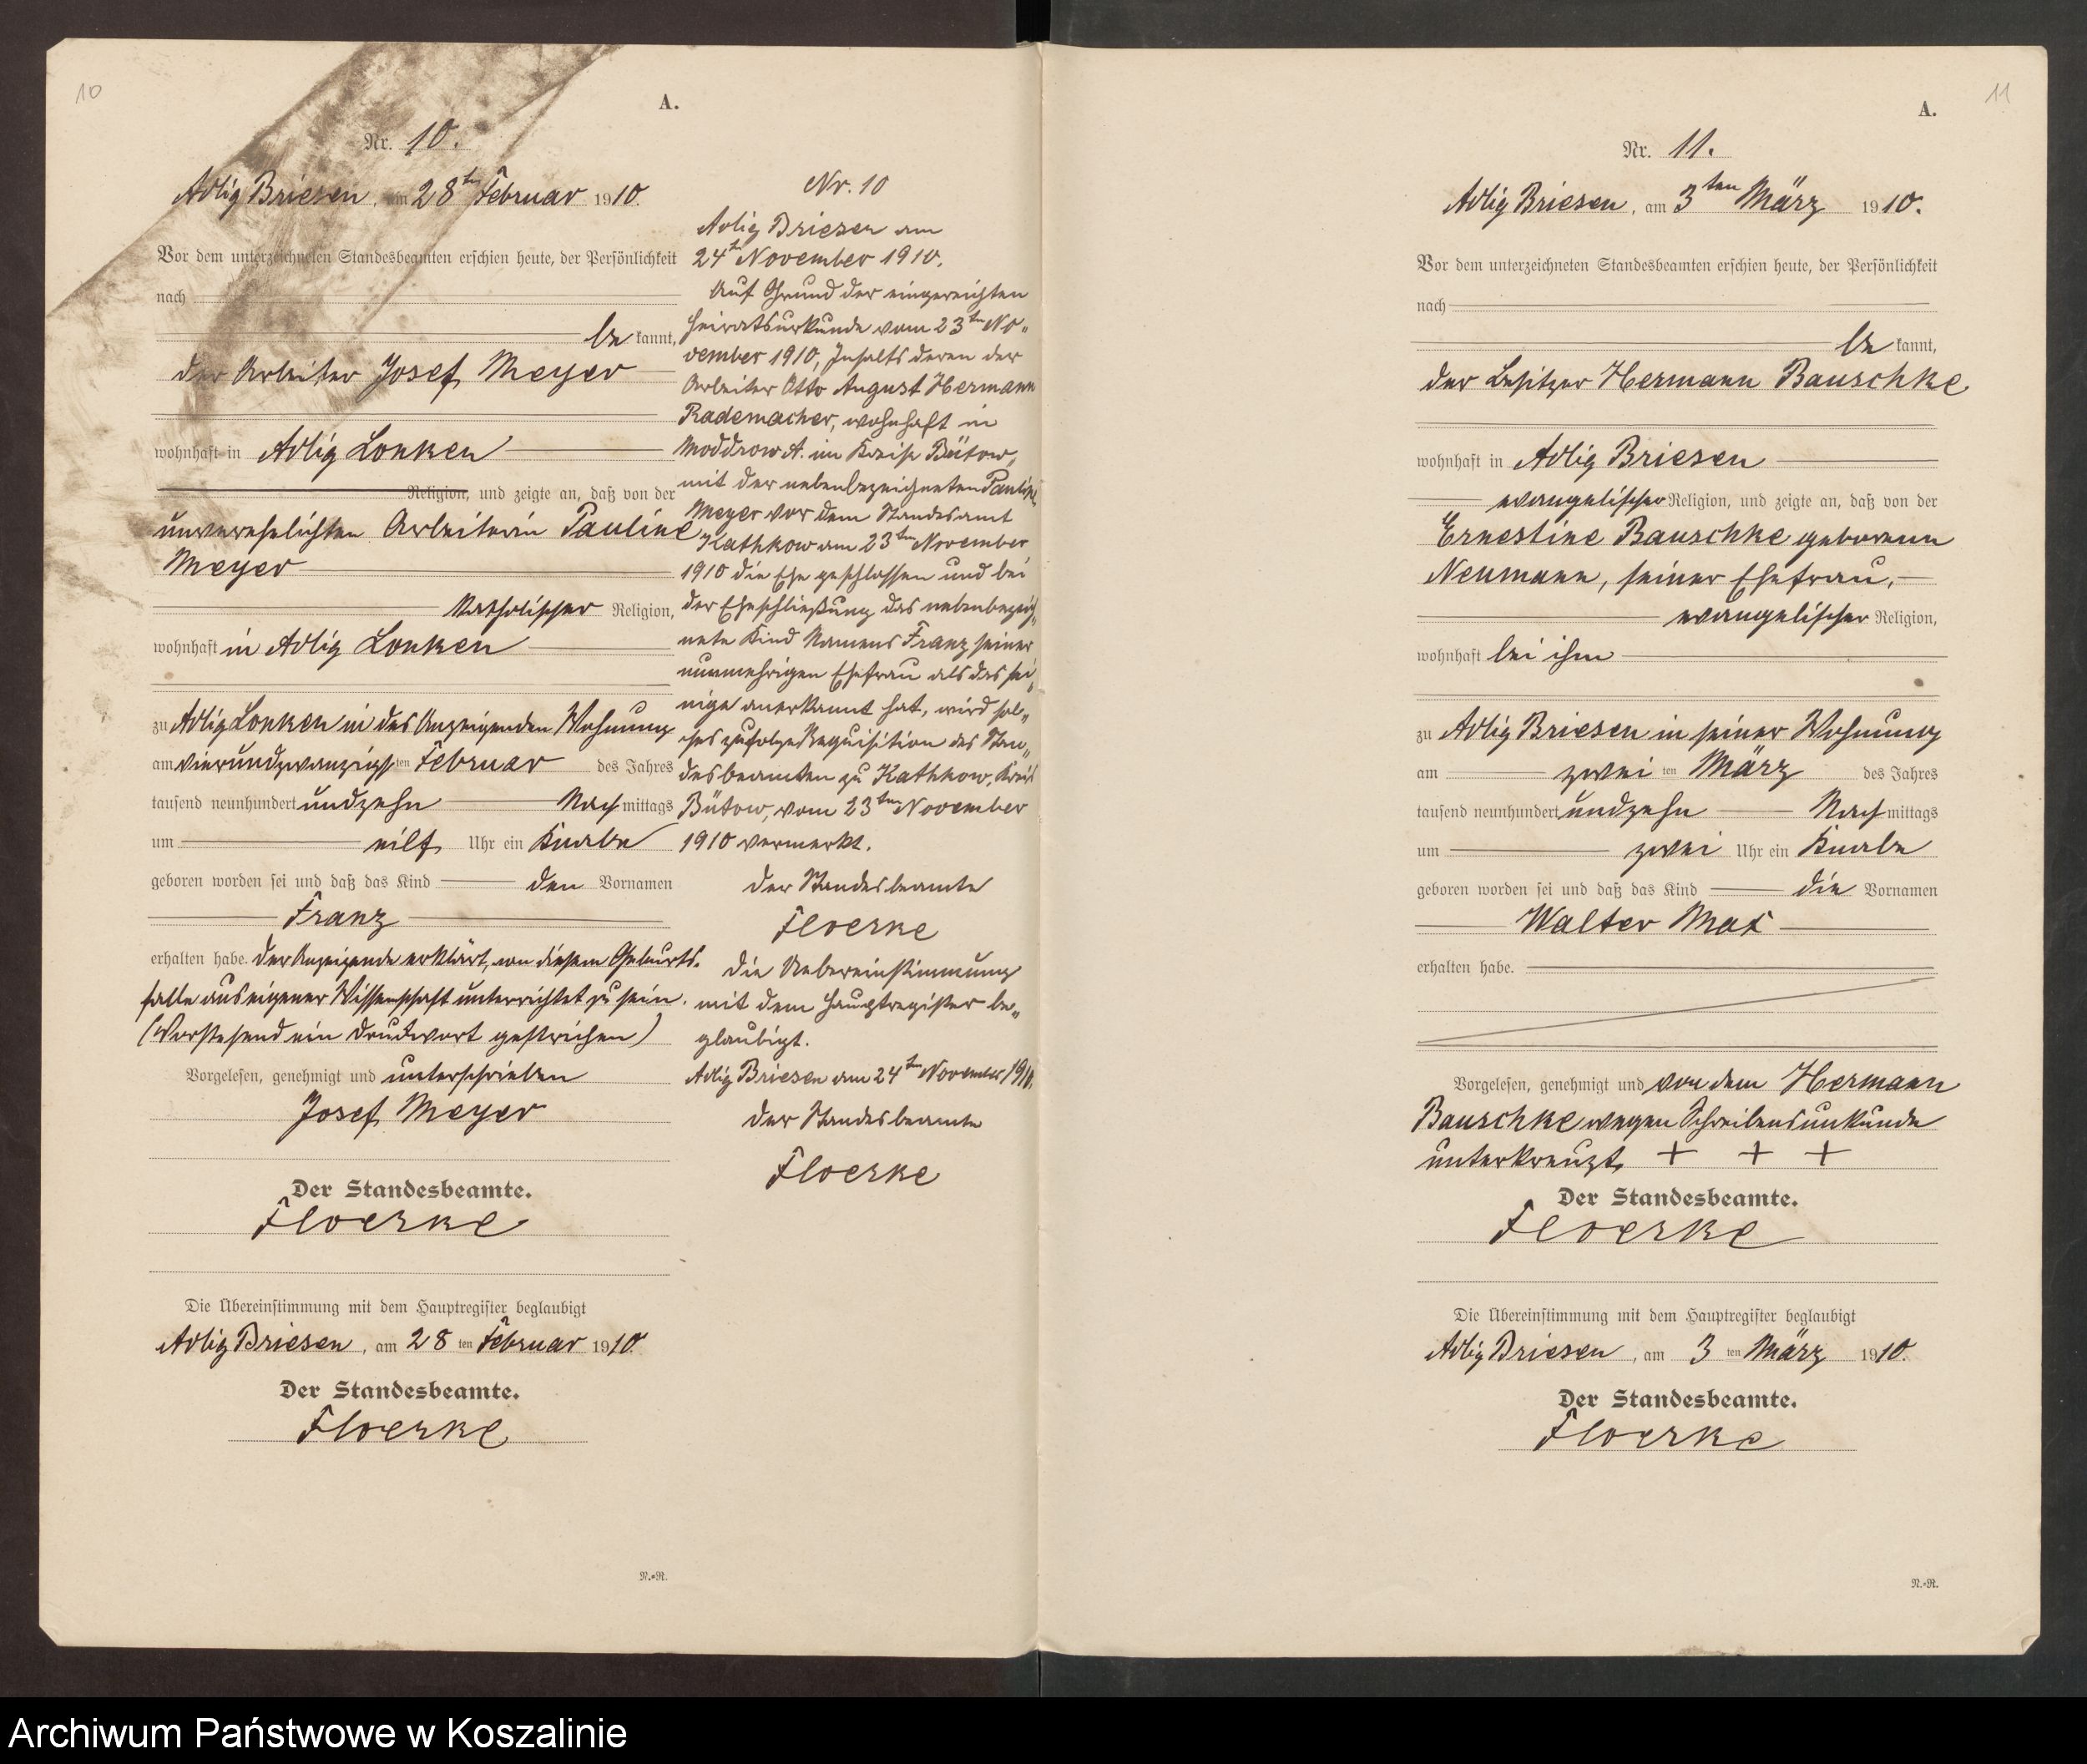 10
A.
Nr. 10.
Adlig Briesen, am 28ten Februar 1910.
Vor dem unterzeichneten Standesbeamten erschien heute, der Persönlichkeit
nach
be kannt,
der Arbeiter Josef Meyer
wohnhaft in Adlig Lonken
Religion, und zeigte an, daß von der
unverehelichten Arbeiterin Pauline
Meyer
katholischer Religion,
wohnhaft in Adlig Lonken
zu Adlig Lonken in des Anzeigenden Wohnung
am vierundzwanzigsten Februar des Jahres
tausend neunhundert und zehn Nachmittags
um eilf Uhr ein Knabe
geboren worden sei und daß das Kind den Vornamen
Franz
erhalten habe. Der Anzeigende erklärt, von diesem Geburts-
falle aus eigener Wissenschaft unterrichtet zu sein.
(Vorstehend ein Druckwort gestrichen)
Vorgelesen, genehmigt und unterschrieben
Josef Meyer
Der Standesbeamte.
Floerke
Die Übereinstimmung mit dem Hauptregister beglaubigt
Adlig Briesen, am 28ten Februar 1910.
Der Standesbeamte.
Floerke
N.-R.
Nr. 10
Adlig Briesen am
24ten November 1910.
Auf Grund der eingereichten
Heiratsurkunde vom 23ten No-
vember 1910, Inhalts deren der
Arbeiter Otto August Hermann
Rademacher, wohnhaft in
Moddrow A. im Kreise Bütow,
mit der nebenbezeichneten Pauline
Meyer vor dem Standesamt
Kathkow am 23ten November
1910 die Ehe geschlossen und bei
der Eheschließung das nebenbezeich-
nete Kind Namens Franz seiner
nunmehrigen Ehefrau als das sei-
nige anerkannt hat, wird sol-
ches zufolge Requisition des Stan-
desbeamten zu Kathkow, Kreis
Bütow, vom 23ten November
1910 vermerkt.
Der Standesbeamte
Floerke
Die Uebereinstimmung
mit dem Hauptregister be-
glaubigt.
Adlig Briesen am 24ten November 1910.
Der Standesbeamte
Floerke
11
A.
Nr. 11.
Adlig Briesen, am 3ten März 1910.
Vor dem unterzeichneten Standesbeamten erschien heute, der Persönlichkeit
nach
be kannt,
der Besitzer Hermann Bauschke
wohnhaft in Adlig Briesen
evangelischer Religion, und zeigte an, daß von der
Ernestine Bauschke geborenen
Neumann, seiner Ehefrau,
evangelischer Religion,
wohnhaft bei ihm
zu Adlig Briesen in seiner Wohnung
am zwei ten März des Jahres
tausend neunhundert und zehn Nachmittags
um zwei Uhr ein Knabe
geboren worden sei und daß das Kind die Vornamen
Walter Max
erhalten habe.
Vorgelesen, genehmigt und von dem Hermann
Bauschke wegen Schreibensunkunde
unterkreuzt. + + +
Der Standesbeamte.
Floerke
Die Übereinstimmung mit dem Hauptregister beglaubigt
Adlig Briesen, am 3ten März 1910.
Der Standesbeamte.
Floerke
N.-R.
Archiwum Państwowe w Koszalinie